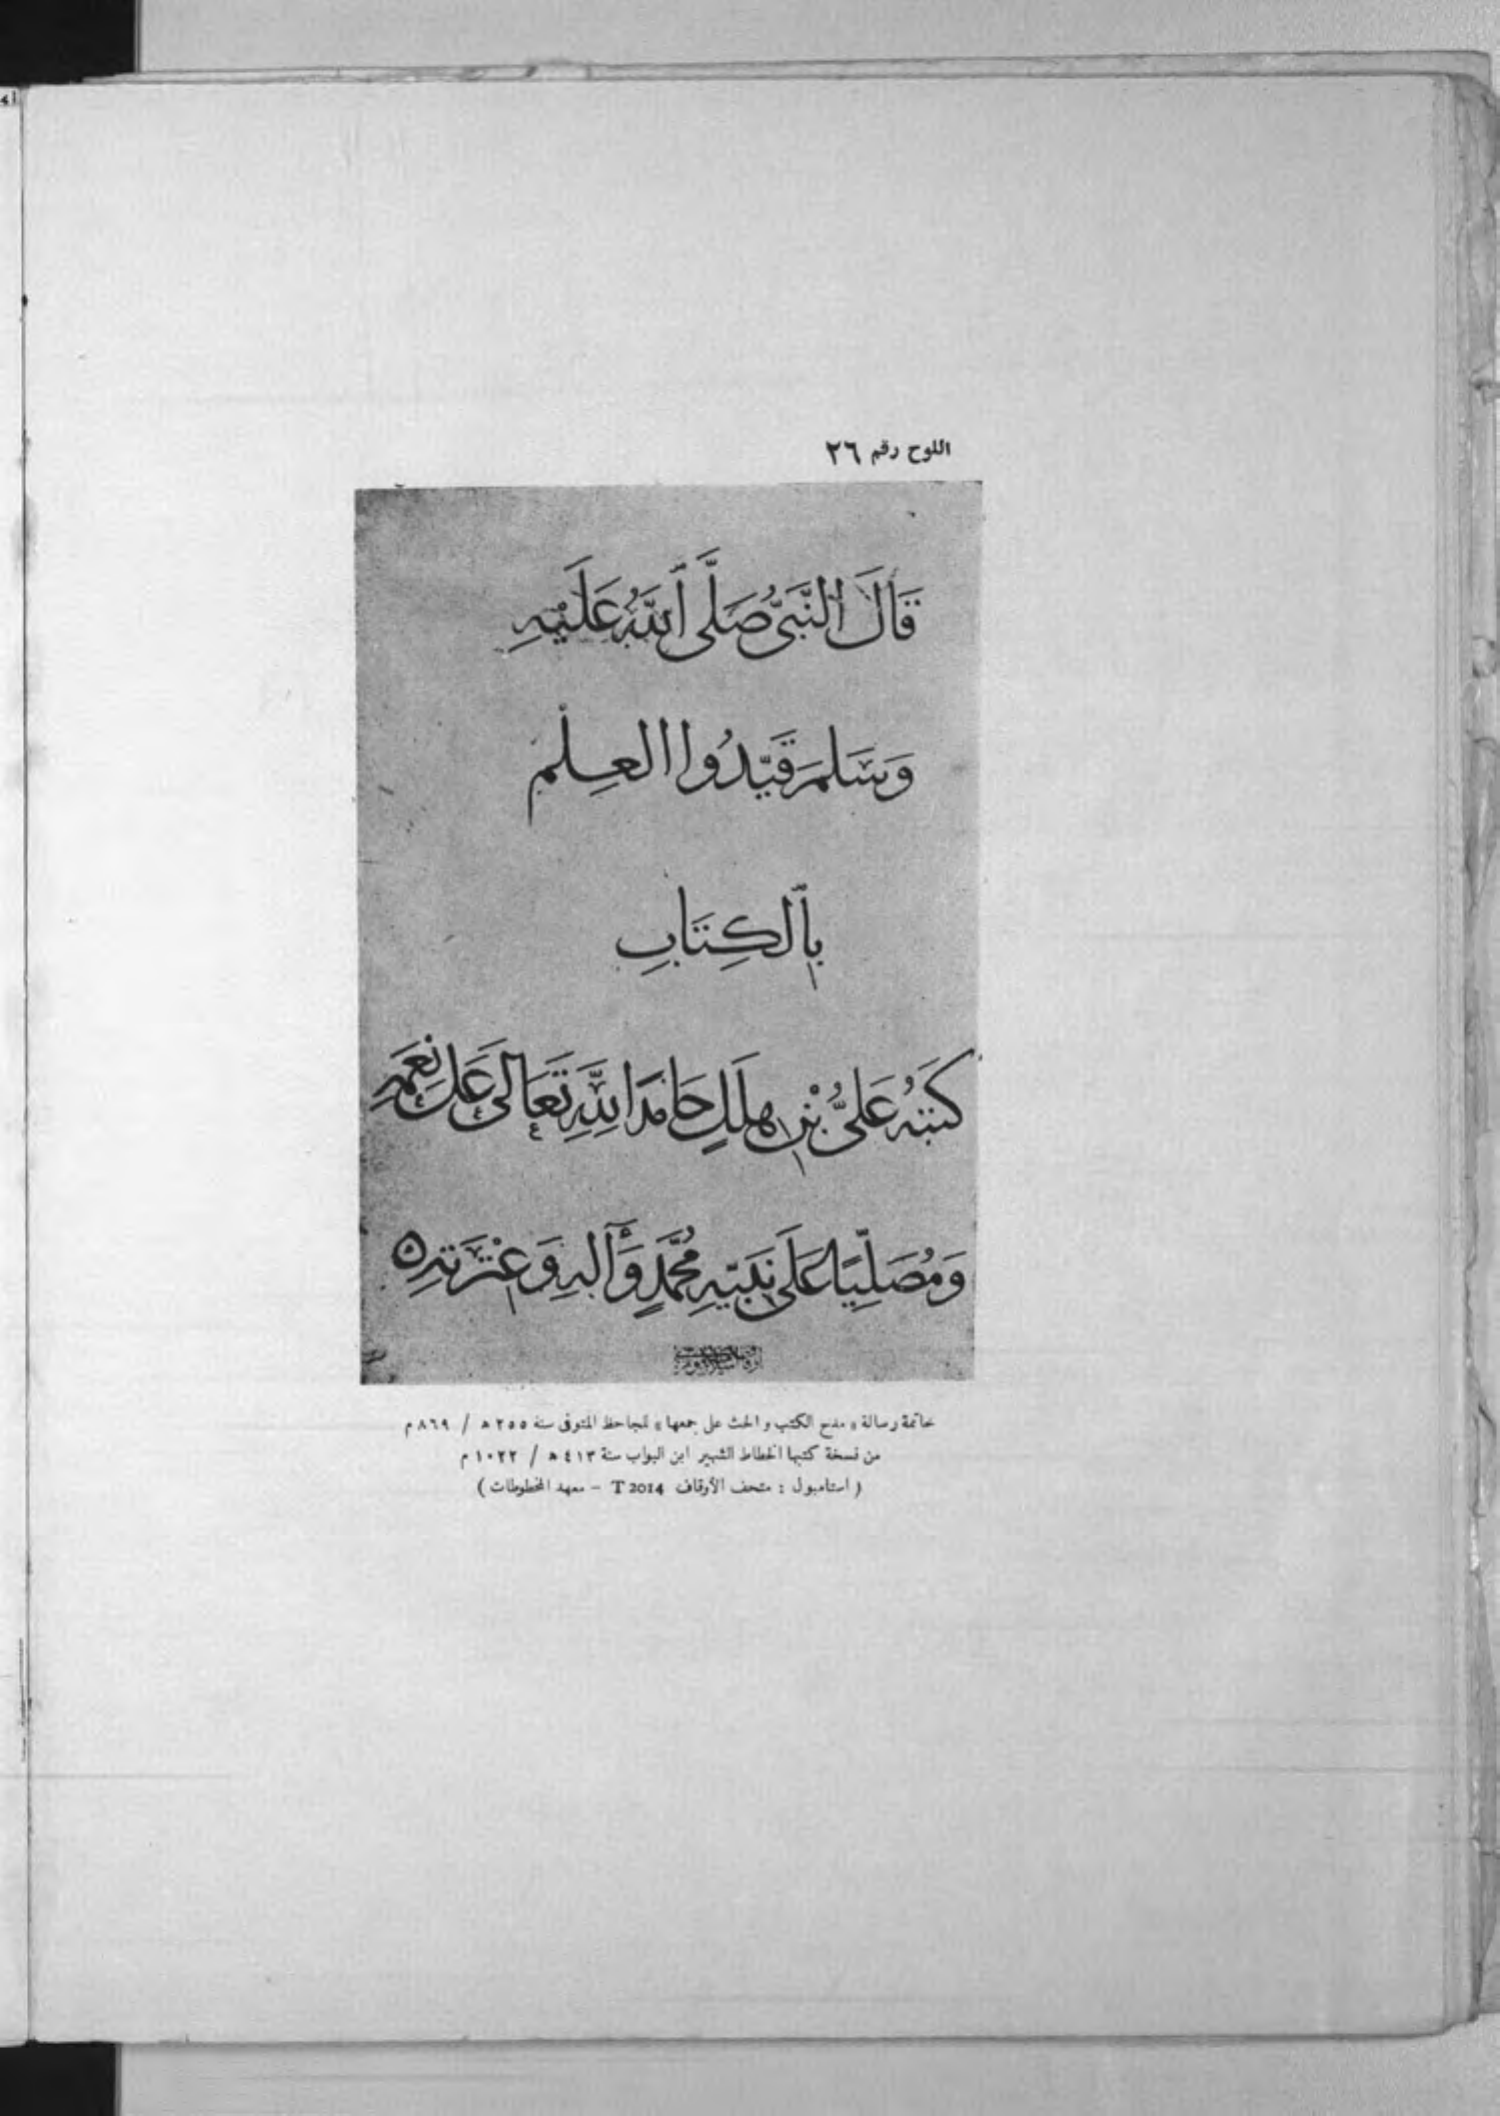 اللوح رقم ٢٦
قَالَ النَّبِيُّ صَلَّى ٱللَّهُ عَلَيْهِ
وَسَلَّمَ قَيِّدُوا العِلْمَ
بِٱلكِتَابِ
كَتَبَهُ عَلِيُّ بْنُ هِلَلٍ حَامِدًا لِلَّهِ تَعَالَى عَلَى نِعَمِهِ
وَمُصَلِّيًا عَلَى نَبِيِّهِ مُحَمَّدٍ وَآلِهِ وَعِتْرَتِهِ ه
خاتمة رسالة « مدح الكتب والحث على جمعها » للجاحظ المتوفى سنة ٢٥٥ هـ / ٨٦٩ م
من نسخة كتبها الخطاط الشهير ابن البواب سنة ٤١٣ هـ / ١٠٢٢ م
( استامبول : متحف الأوقاف T 2014 – معهد المخطوطات )